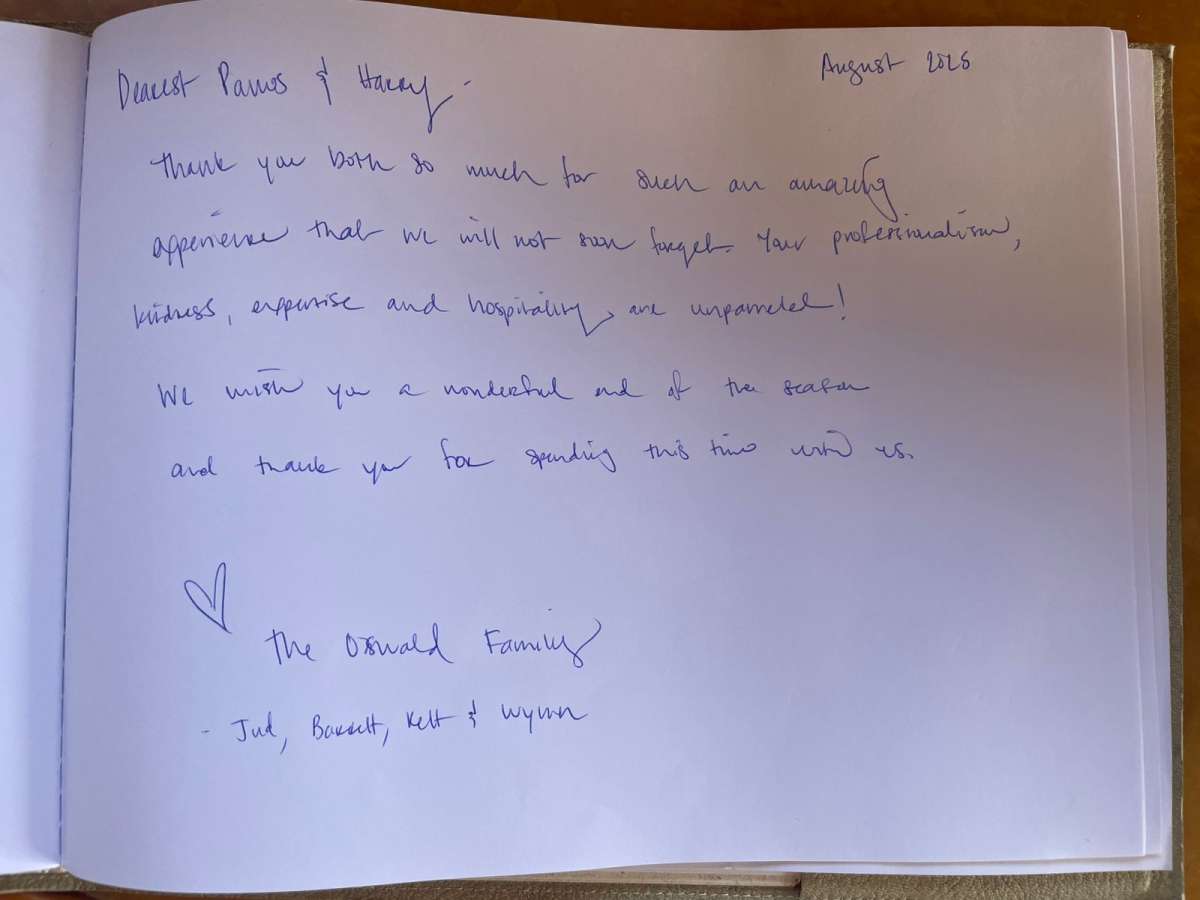 August 2025
Dearest Panos & Harry -
Thank you both so much for such an amazing
experience that we will not soon forget. Your professionalism,
kindness, expertise and hospitality, are unparreled!
We wish you a wonderful end of the season
and thank you for spending this time with us.
The Oswald Family
- Jud, Barrett, Kett & Wynn